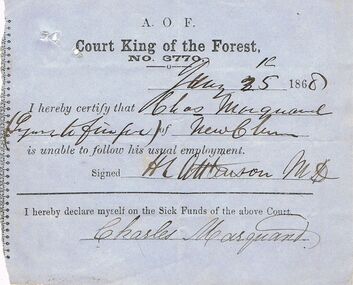 A. O. F.
Court King of the Forest,
NO. 3770
Jany 25 1868
I hereby certify that Chas Marquand
of New Chum
is unable to follow his usual employment.
Signed H L Atkinson MD
I hereby declare myself on the Sick Funds of the above Court.
Charles Marquand